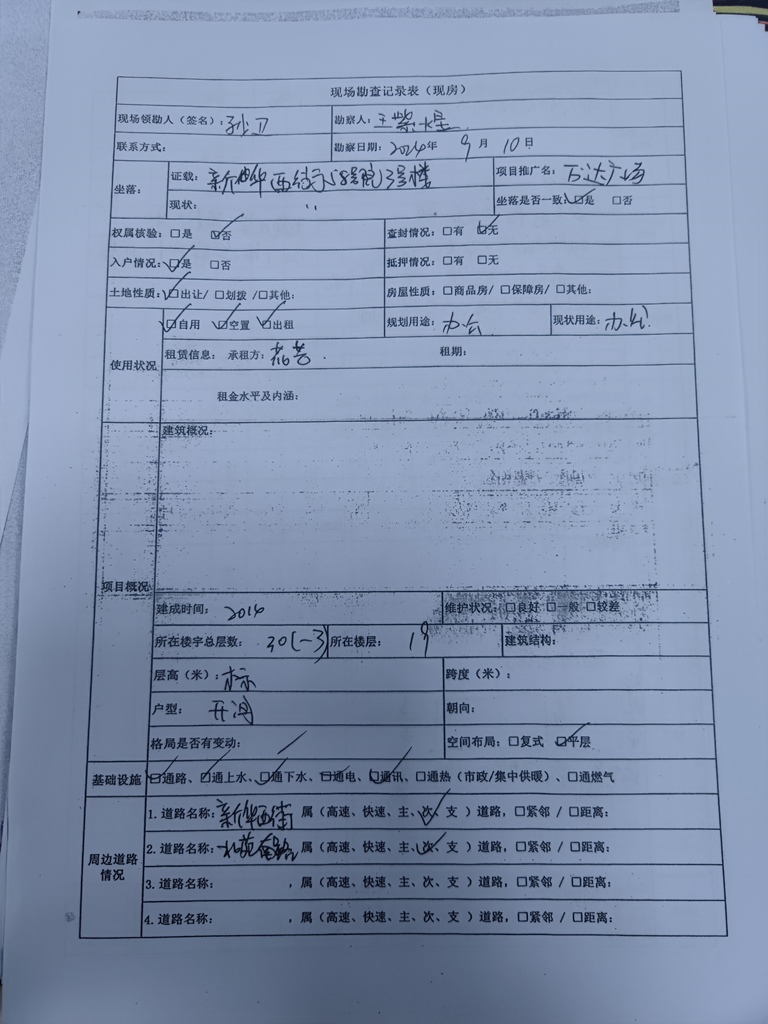 现场勘查记录表（现房）
现场领勘人（签名）：孙卫 勘察人：王紫星
联系方式： 勘察日期：2024年 9月 10日
坐落： 证载：新华西街58号院3号楼 项目推广名：万达广场
现状：〃 坐落是否一致：☑是 □否
权属核验：□是 ☑否 查封情况：□有 ☑无
入户情况：☑是 □否 抵押情况：□有 □无
土地性质：☑出让/ □划拨 /□其他: 房屋性质：□商品房/ □保障房/ □其他:
使用状况 ☑自用 ☑空置 ☑出租 规划用途：办公 现状用途：办公
租赁信息： 承租方： 租期：
租金水平及内涵：
项目概况 建筑概况：
建成时间：2014 维护状况：□良好 □一般 □较差
所在楼宇总层数：30(-3) 所在楼层：19 建筑结构：
层高（米）：标 跨度（米）：
户型：开间 朝向：
格局是否有变动：／ 空间布局：□复式 ☑平层
基础设施 ☑通路、☑通上水、☑通下水、☑通电、☑通讯、□通热（市政/集中供暖）、□通燃气
周边道路情况 1. 道路名称：新华西街 属（高速、快速、主、次✓、支 ）道路，□紧邻 / □距离：
2. 道路名称：北苑南路 属（高速、快速、主、次✓、支 ）道路，□紧邻 / □距离：
3. 道路名称： ，属（高速、快速、主、次、支 ）道路，□紧邻 / □距离：
4. 道路名称： ，属（高速、快速、主、次、支 ）道路，□紧邻 / □距离：